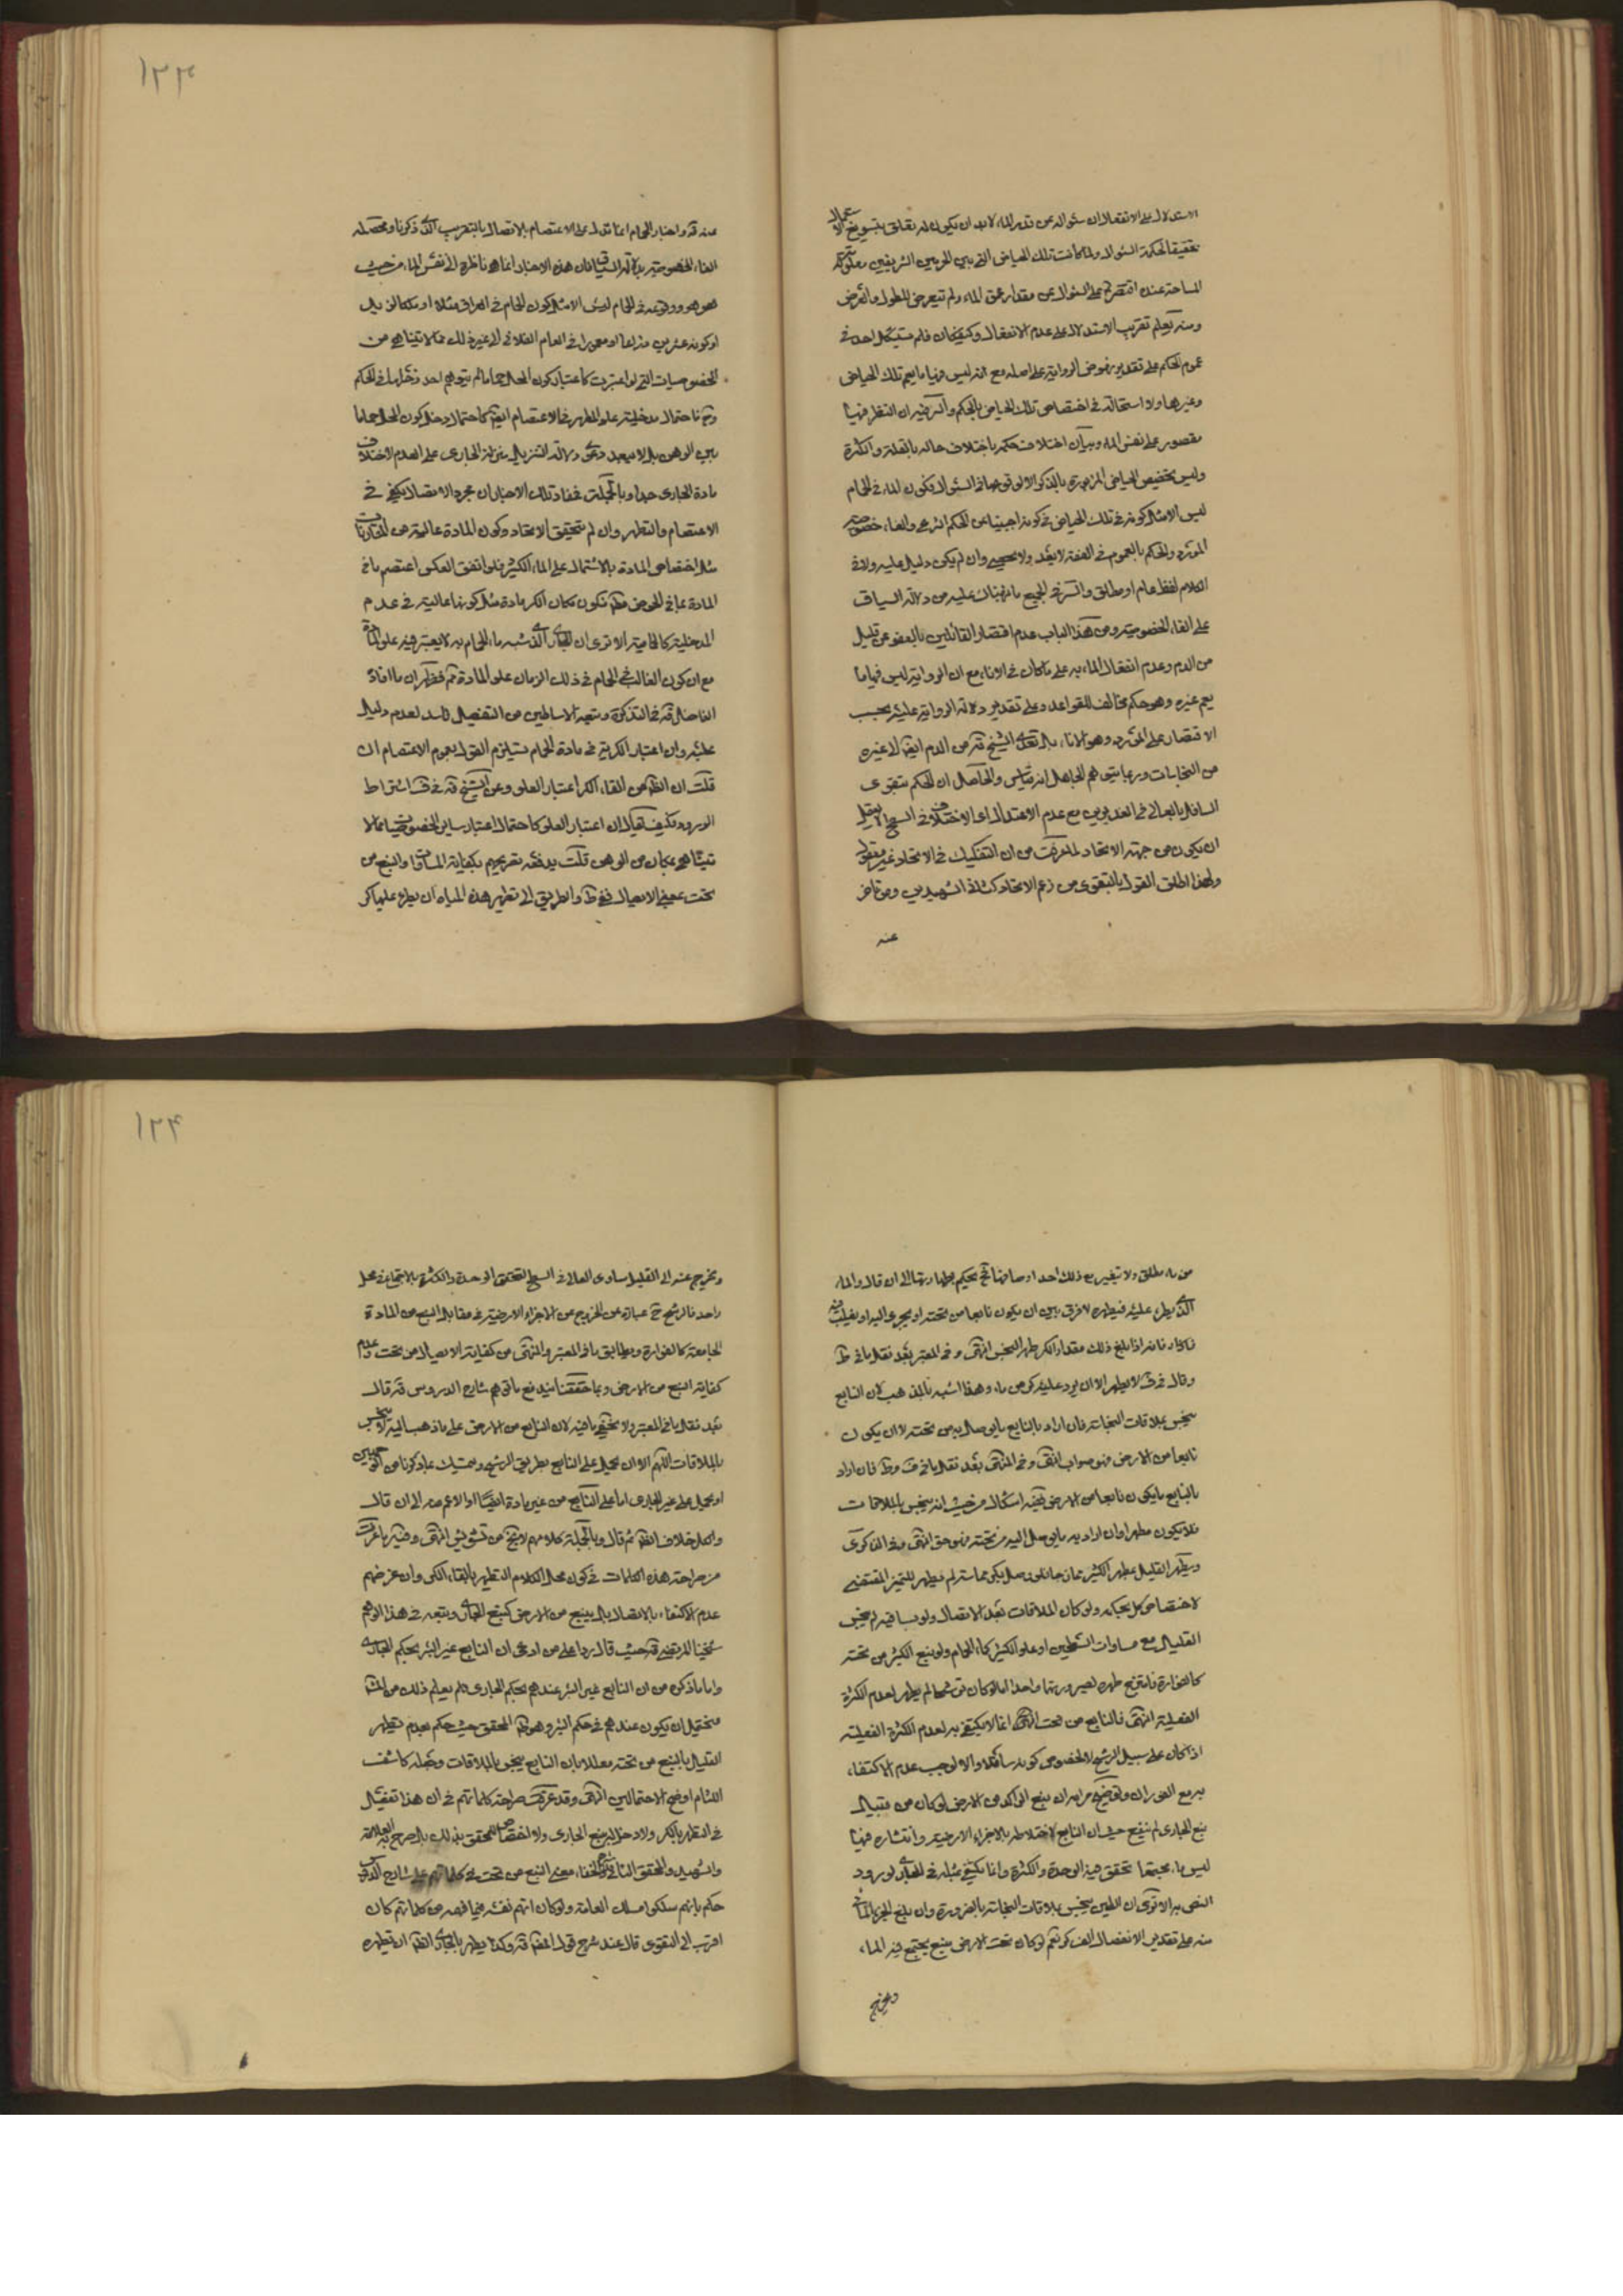 الاستدلال على الانفعال ان سئواله عن قدر الماء لابد ان يكون له تعلق بتسويغ الاستعمال
تحقيقا لحكمة السئوال ولما كانت تلك الحياض التي بين الحرمين الشريفين معلومة
المساحة عنده اقتصر على السئوال عن مقدار عمق الماء ولم يتعرض للطول والعرض
ومنه يعلم تقريب الاستدلال على عدم الانفعال وكيف كان فلم يستشكل احد في
عموم الحكم على تقدير نهوض الرواية على اصله مع انه ليس فيها ما يعم تلك الحياض
وغيرها ولا استحالة في اختصاص تلك الحياض بالحكم والسر فيه ان النظر فيها
مقصور على نفس الماء وبيان اختلاف حكمه باختلاف حاله بالقلة والكثرة
وليس تخصيص الحياض المزبورة بالذكر الا لوقوعها في السئوال فكون الماء في الحمام
ليس الا مثل كونه في تلك الحياض في كونه اجنبيا عن الحكم الشرعي والغاء خصوصية
المورد والحكم بالعموم في الفقه لا يعد ولا يحصى وان لم يكن دليل عليه ولا في
الكلام لفظ عام او مطلق والسر في الجميع ما نبهناك عليه من دلالة السياق
على الغاء الخصوصية ومن هذا الباب عدم اقتصار القائلين بالعفو عن قليل
من الدم وعدم انفعال الماء به على ما كان في الاناء مع ان الرواية ليس فيها ما
يعم غيره وهو حكم مخالف للقواعد وعلى تقدير دلالة الرواية عليه يجب
الاقتصار على المورد وهو الاناء بل تعدى الشيخ قده من الدم ايضا الى غيره
من النجاسات وربما يتوهم الجاهل انه قياس والحاصل ان الحكم بتقوى
السافل بالعالي في الغديرين مع عدم الاعتدال اي الاختلاف في السطح لا يعقل
ان يكون من جهة الاتحاد لما عرفت من ان التفكيك في الاتحاد غير معقول
ولهذا اطلق القول بالتقوى من زعم الاتحاد كثاني الشهيدين ومن تاخر
عنه
١٢٣
عنه قده واخبار الحمام انما تدل على الاعتصام بالاتصال بالتقريب الذي ذكرنا ومحصله
الغاء الخصوصية بدلالة السياق فان هذه الاخبار انما هي ناظرة الى نفس الماء من حيث
هو هو ووقوعه في الحمام ليس الا مثل كون الحمام في العراق مثلا او ملكا لزيد
او كونه عشرين ذراعا او معمورا في العام الفلاني الى غير ذلك مما لا يتناهى من
الخصوصيات التي لو اعتبرت كاعتبار كون المحل حماما لم يتوهم احد دخلها في الحكم
وح فاحتمال مدخلية علو المطهر في الاعتصام ايضا كاحتمال دخل كون المحل حماما
بين الوهن بل لا يبعد دعوى دلالة التنزيل منزلة الجاري على العدم لاختلاف
مادة الجاري جدا وبالجملة فمفاد تلك الاخبار ان مجرد الاتصال يكفي في
الاعتصام والتطهر وان لم يتحقق الاتحاد وكون المادة عالية من المقارنات
مثل اختصاص المادة بالاشتمال على الماء الكثير فلو اتفق العكس اعتصم ما في
المادة بما في الحوض فظهر ان كون مكان الكر مادة مثل كونها عالية في عدم
المدخلية كالحمامية الا ترى ان الجاري الذي شبه ماء الحمام به لا يعتبر فيه علو المادة
مع ان كون الغالب في الحمام في ذلك الزمان علو المادة ثم فظهر ان ما افاده
الفاضل قده في التذكرة وتبعه الاساطين من التفصيل فاسد لعدم دليل
عليه وان اعتبار الكرية في مادة الحمام يستلزم القول بعموم الاعتصام ان
قلت ان الظاهر من القاء الكر اعتبار العلو وعن الشيخ قده في ف اشتراط
الورود فكيف يقال ان اعتبار العلو كاحتمال اعتبار ساير الخصوصيات مما لا
يتناهى بمكان من الوهن قلت يدفعه تصريحهم بكفاية المساواة والنبع من
تحت ففي ط والطريق الى تطهير هذه المياه ان يطرء عليها كر
من ماء مطلق ولا يتغير مع ذلك احد اوصافها فح يحكم بطهارتها الى ان قال والماء
الذي يطرء عليه فيطهره لا فرق بين ان يكون نابعا من تحته او يجري اليه او يغلب فيه
فانه اذا بلغ ذلك مقدار الكر طهر النجس انتهى وفي المعتبر بعد نقل ما في ط
وقال في ف لا يطهر الا ان يرد عليه كر من ماء وهذا اشبه بالمذهب لان النابع
ينجس بملاقات النجاسة فان اراد بالنابع ما يوصل به من تحته لا ان يكون
نابعا من الارض فهو صواب انتهى وفي المنتهى بعد نقل ما في ف وط فان اراد
بالنابع ما يكون نابعا من الارض ففيه اشكال من حيث انه ينجس بالملاقات
فلا يكون مطهرا وان اراد به ما يوصل اليه من تحته فهو حق انتهى وفي الذكرى
ويطهر القليل بمطهر الكثير ممازجا فلو وصل بكر مماسة لم يطهر للتميز المقتضي
لاختصاص كل بحكمه ولو كان الملاقات بعد الاتصال ولو بساقية لم ينجس
القليل مع مساوات السطحين او علو الكثير كماء الحمام ولو نبع الكثير من تحته
كالفوارة فامتزج طهره لصيرورتهما واحدا اما لو كان ترشحا لم يطهر لعدم الكثرة
الفعلية انتهى فالنابع من تحت انما لا يكتفى به لعدم الكثرة الفعلية
اذا كان على سبيل الرشح لا لخصوص كونه سافلا والا لوجب عدم الاكتفاء
به مع الفوران وتوضيح مرامه ان نبع الراكد من الارض لو كان من قبيل
نبع الجاري لم ينفع حيث ان النابع لاختلاطه بالاجزاء الارضية وانتشاره فيها
ليس ماء مجتمعا تتحقق فيه الوحدة والكثرة وانما يكتفى بمثله في الجاري لورود
النص به الا ترى ان الطين ينجس بملاقات النجاسة بالضرورة وان بلغ الجزء المائي
منه على تقدير الانفصال الف كر نعم لو كان تحت الارض منبع يجتمع فيه الماء
ويخرج
١٢٤
ويخرج عنه الى القليل ساوى العالي في السطح لتحقق الوحدة والكثرة بالاجتماع في محل
واحد فالرشح ح عبارة عن الخروج من الاجزاء الارضية في مقابل النبع من المادة
الجامعة كالفوارة ويطابق ما في المعتبر والمنتهى من كفاية الايصال من تحت وعدم
كفاية النبع من الارض وبما حققنا يندفع ما توهم شارح الدروس قده قال
بعد نقل ما في المعتبر ولا يخفى ما فيه لان النابع من الارض على ما ذهب اليه لا ينجس
بالملاقات اللهم الا ان يحمل على النابع بطريق الرشح
او يحمل على غير الجاري اما على النابع من غير مادة ايضا او الاعم منه الى ان قال
والكل خلاف الظاهر ثم قال وبالجملة كلامهم لا يخ من تشويش انتهى وفيه ما عرفت
من صراحة هذه الكلمات في كون محل الكلام التطهير بالقاء الكر وان غرضهم
عدم الاكتفاء بالاتصال بل بنبع من الارض كنبع الجاري وتبعه في هذا الوهم
شيخنا المرتضى قده حيث قال ردا على من ادعى ان النابع غير البئر بحكم الجاري
واما ما ذكره من ان النابع غير البئر عندهم بحكم الجاري فلم يعلم ذلك من
فيحتمل ان يكون عندهم في حكم البئر وهو المحقق حيث حكم بعدم تطهير
القليل بالنبع من تحته معللا بان النابع ينجس بالملاقات وجعله كاشف
اللثام اوضح الاحتمالين انتهى وقد عرفت صراحة كلماتهم في ان هذا تفصيل
في التطهير بالكر ولا دخل له بنبع الجاري ولا اختصاص للمحقق بذلك بل صرح به العلامة
والشهيد والمحقق الثاني ولخفاء معنى النبع من تحت في كلماتهم على شارح الدروس
حكم بانهم سلكوا مسلك العامة ولو كان اتهم نفسه فيما فهمه من كلماتهم كان
اقرب الى التقوى قال عند شرح قول المصنف قده وكذا يطهر بالجاري الظاهر ان تطهره